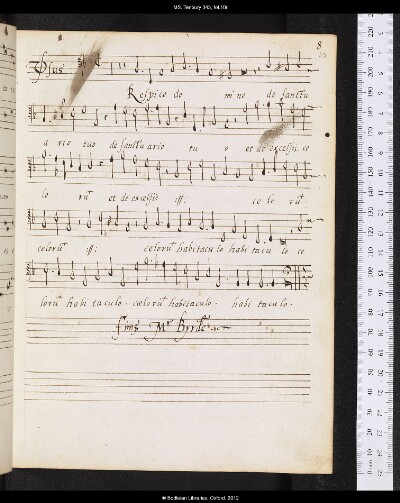 MS. Tenbury 343, fol.10r
8
10
Respice do mi ne de sanctu
a rio tuo de sanctu ario tu o et de excelsis ce
lo rū et de excelsis :ıj: ce lo rū
celorū :ıj: celorū habitacu lo habi tacu lo ce
lorū habi ta culo. celorū habitaculo. habi ta culo.
finis Mr Byrde
© Bodleian Libraries, Oxford, 2012